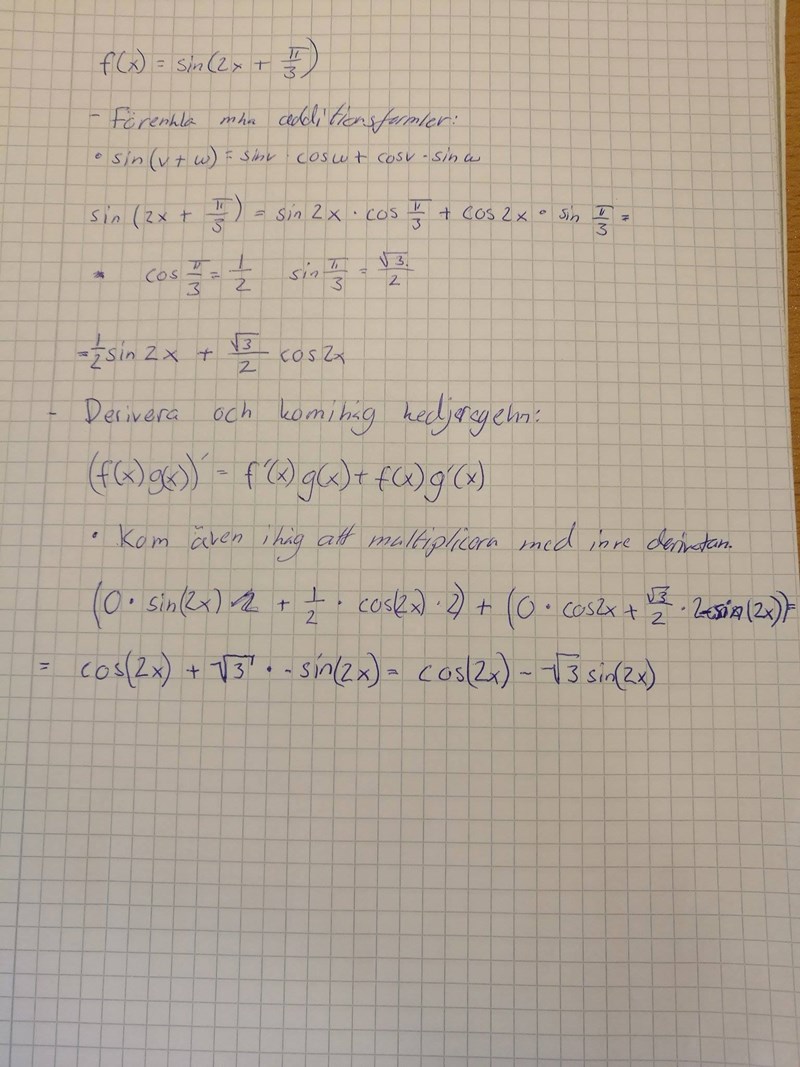 f(x) = sin(2x + π/3)
- Förenkla mha additionsformler:
• sin(v+w) = sinv · cosw + cosv · sinw
sin(2x + π/3) = sin 2x · cos π/3 + cos 2x · sin π/3 =
• cos π/3 = 1/2 sin π/3 = √3/2
= 1/2 sin 2x + √3/2 cos 2x
- Derivera och komihåg kedjeregeln:
(f(x)g(x))' = f'(x)g(x) + f(x)g'(x)
• Kom även ihåg att multiplicera med inre derivatan.
(0 · sin(2x) · 2 + 1/2 · cos(2x) · 2) + (0 · cos2x + √3/2 · 2 · -sin(2x)) =
= cos(2x) + √3 · -sin(2x) = cos(2x) - √3 sin(2x)